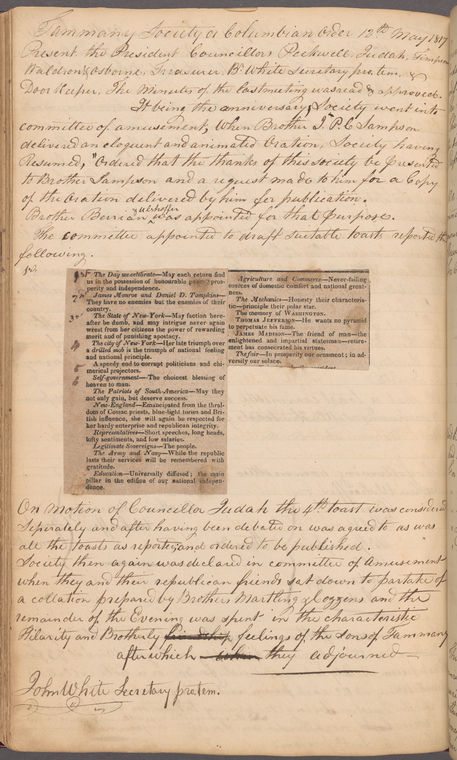 Tammany Society or Columbian Order 12th May 1817
Present the President Councillors Peckwell, Judah, Thompson
Waldron & Osborne, Treasurer, B White Secretary protem, &
Door Keeper. The Minutes of the last meeting was read & approved.
It being the anniversary, Society went into
committee of amusement, When Brother P. C Sampson
delivered an eloquent and animated Oration, Society having
Resumed, "Ordered that the thanks of this society be presented
to Brother Sampson and a request made to him for a Copy
of the Oration delivered by him for publication.
Brother Berrian & Ulshoffer was appointed for that purpose.
The committee appointed to draft suitable toasts reported the
following.
1st The Day we celebrate—May each return find
us in the possession of honourable peace, prosperity
and independence.
2d James Monroe and Daniel D. Tompkins—
They have no enemies but the enemies of their
country.
3d The State of New-York—May faction hereafter
be dumb, and may intrigue never again
wrest from her citizens the power of rewarding
merit and of punishing apostacy.
4 The city of New-York—Her late triumph over
a drilled mob is the triumph of national feeling
and national principle.
5 A speedy end to corrupt politicians and chimerical
projectors.
6 Self-government—The choicest blessing of
heaven to man.
The Patriots of South-America—May they
not only gain, but deserve success.
New-England—Emancipated from the thraldom
of Cossac priests, blue-light tories and British
influence, she will again be respected for
her hardy enterprise and republican integrity.
Representatives—Short speeches, long heads,
lofty sentiments, and low salaries.
Legitimate Sovereigns—The people.
The Army and Navy—While the republic
lasts their services will be remembered with
gratitude.
Education—Universally diffused; the main
pillar in the edifice of our national independence.
Agriculture and Commerce—Never-failing
sources of domestic comfort and national greatness.
The Mechanics—Honesty their characteristic—principle
their polar star.
The memory of WASHINGTON.
THOMAS JEFFERSON—He wants no pyramid
to perpetuate his fame.
JAMES MADISON—The friend of man—the
enlightened and impartial statesman—retirement
has consecrated his virtues.
The fair—In prosperity our ornament; in adversity
our solace.
On Motion of Councillor Judah the 4th toast was considered
Seperately and after having been debated on was agreed to as was
all the toasts as reported and ordered to be published.
Society then again was declared in committee of Amusement
when they and their republican friends sat down to partake of
a collation prepared by Brothers Martling & Coggens and the
remainder of the Evening was spent in the characteristic
Hilarity and Brotherly friendship feelings of the sons of Tammany
after which when they adjourned—
John White Secretary protem.